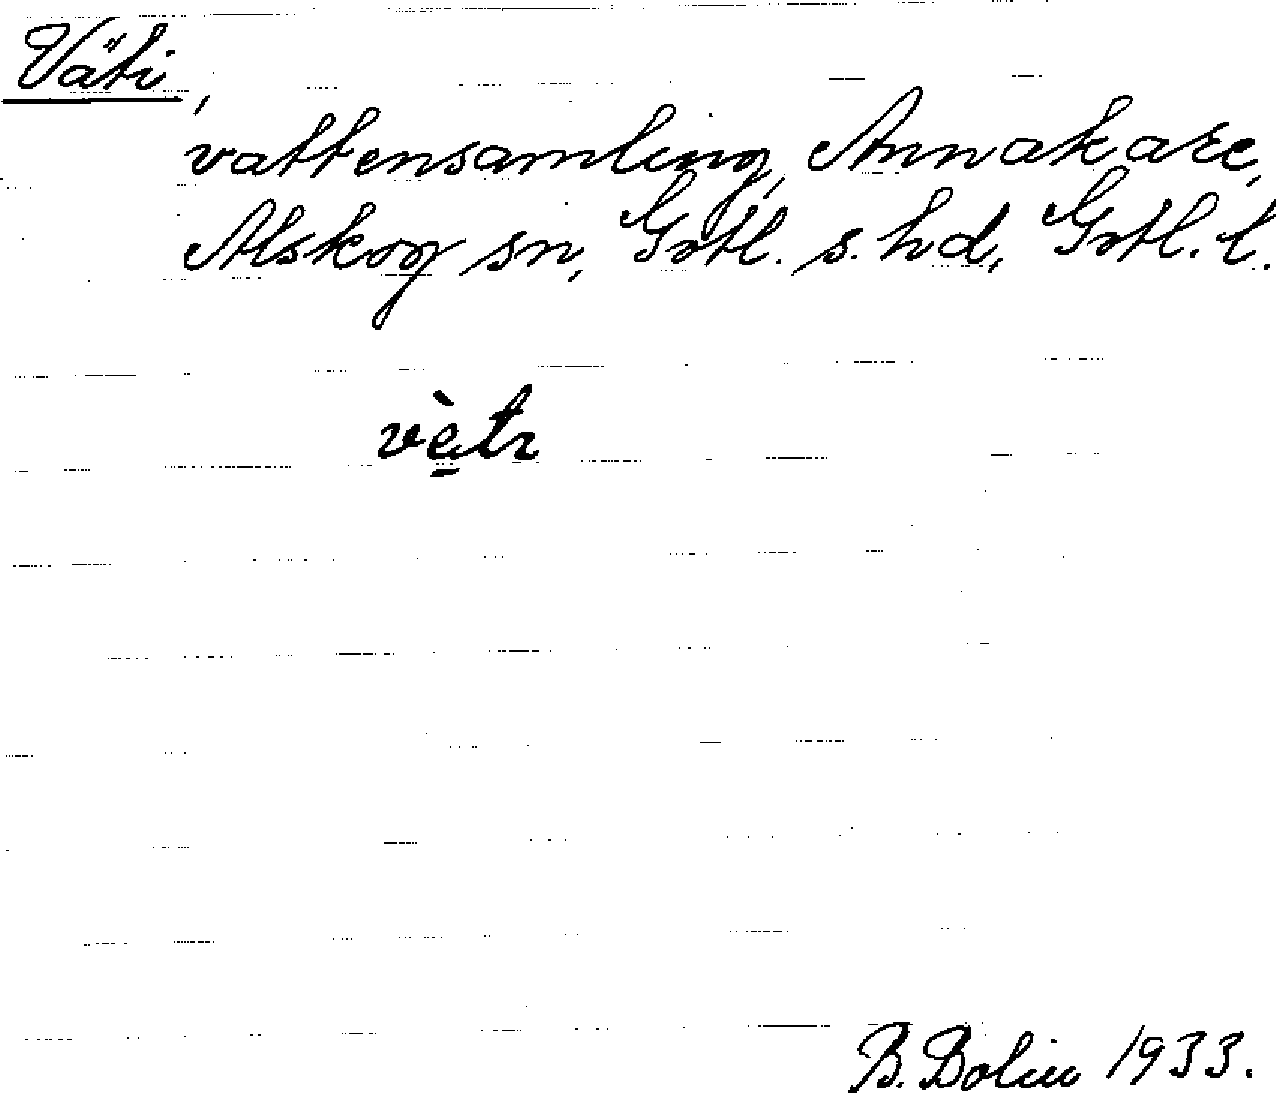 Väti,
vattensamling, Annakare,
Alskog sn, Gotl. s. hd, Gotl. l.
vè̱tı
B. Bolin 1933.